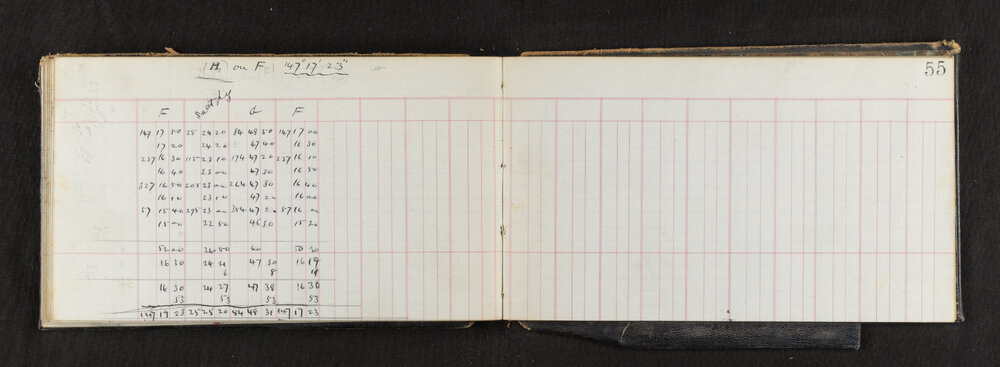 55
H on F 147° 17' 23"
F G F
147 17 50 25 24 20 84 48 50 147 17 00
17 20 24 20 47 40 16 30
237 16 30 115 23 10 174 47 20 237 16 10
16 40 23 00 47 30 16 50
327 16 50 205 23 00 264 47 30 16 40
16 10 23 10 47 20 16 00
57 15 40 295 23 00 354 47 20 57 16 00
15 00 22 50 46 30 15 20
52 00 26 50 60 50 30
16 30 24 21 47 30 16 19
6 8 11
16 30 24 27 47 38 16 30
53 53 53 53
147 17 23 25 25 20 84 48 31 147 17 23